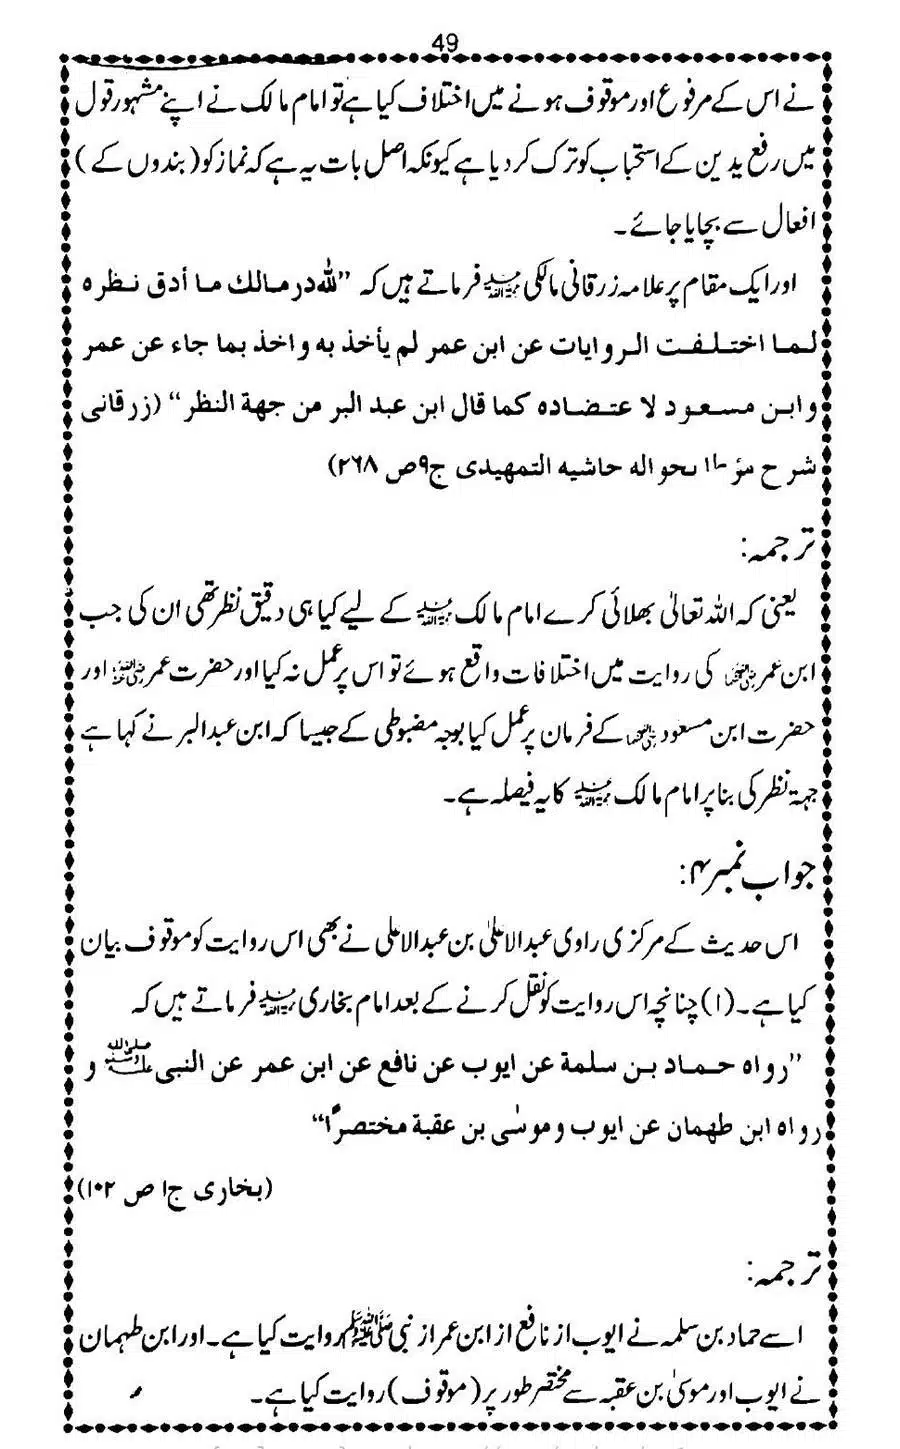 49
نے اس کے مرفوع اور موقوف ہونے میں اختلاف کیا ہے تو امام مالک نے اپنے مشہور قول
میں رفع یدین کے استحباب کو ترک کر دیا ہے کیونکہ اصل بات یہ ہے کہ نماز کو (بندوں کے)
افعال سے بچایا جائے۔
اور ایک مقام پر علامہ زرقانی مالکی رحمہ اللہ فرماتے ہیں کہ ”للہ در مالک ما أدق نظرہ
لما اختلفت الروایات عن ابن عمر لم یأخذ به واخذ بما جاء عن عمر
وابن مسعود لا عتضادہ کما قال ابن عبد البر من جهة النظر“ (زرقانی
شرح مؤطا بحواله حاشیه التمهیدی ج۹ص ۲۶۸)
ترجمہ:
یعنی کہ اللہ تعالیٰ بھلائی کرے امام مالک رحمہ اللہ کے لیے کیا ہی دقیق نظر تھی ان کی جب
ابن عمر رضی اللہ عنہما کی روایت میں اختلافات واقع ہوئے تو اس پر عمل نہ کیا اور حضرت عمر رضی اللہ عنہ اور
حضرت ابن مسعود رضی اللہ عنہما کے فرمان پر عمل کیا بوجہ مضبوطی کے جیسا کہ ابن عبدالبر نے کہا ہے
جہتہ نظر کی بنا پر امام مالک رحمہ اللہ کا یہ فیصلہ ہے۔
جواب نمبر ۴:
اس حدیث کے مرکزی راوی عبدالاعلیٰ بن عبدالاعلی نے بھی اس روایت کو موقوف بیان
کیا ہے۔ (۱) چنانچہ اس روایت کو نقل کرنے کے بعد امام بخاری رحمہ اللہ فرماتے ہیں کہ
”رواه حماد بن سلمة عن ایوب عن نافع عن ابن عمر عن النبی ﷺ و
رواه ابن طهمان عن ایوب وموسٰی بن عقبة مختصرًا“
(بخاری ج۱ ص ۱۰۲)
ترجمہ:
اسے حماد بن سلمہ نے ایوب از نافع از ابن عمر از نبی ﷺ روایت کیا ہے۔ اور ابن طہمان
نے ایوب اور موسیٰ بن عقبہ سے مختصر طور پر (موقوف) روایت کیا ہے۔